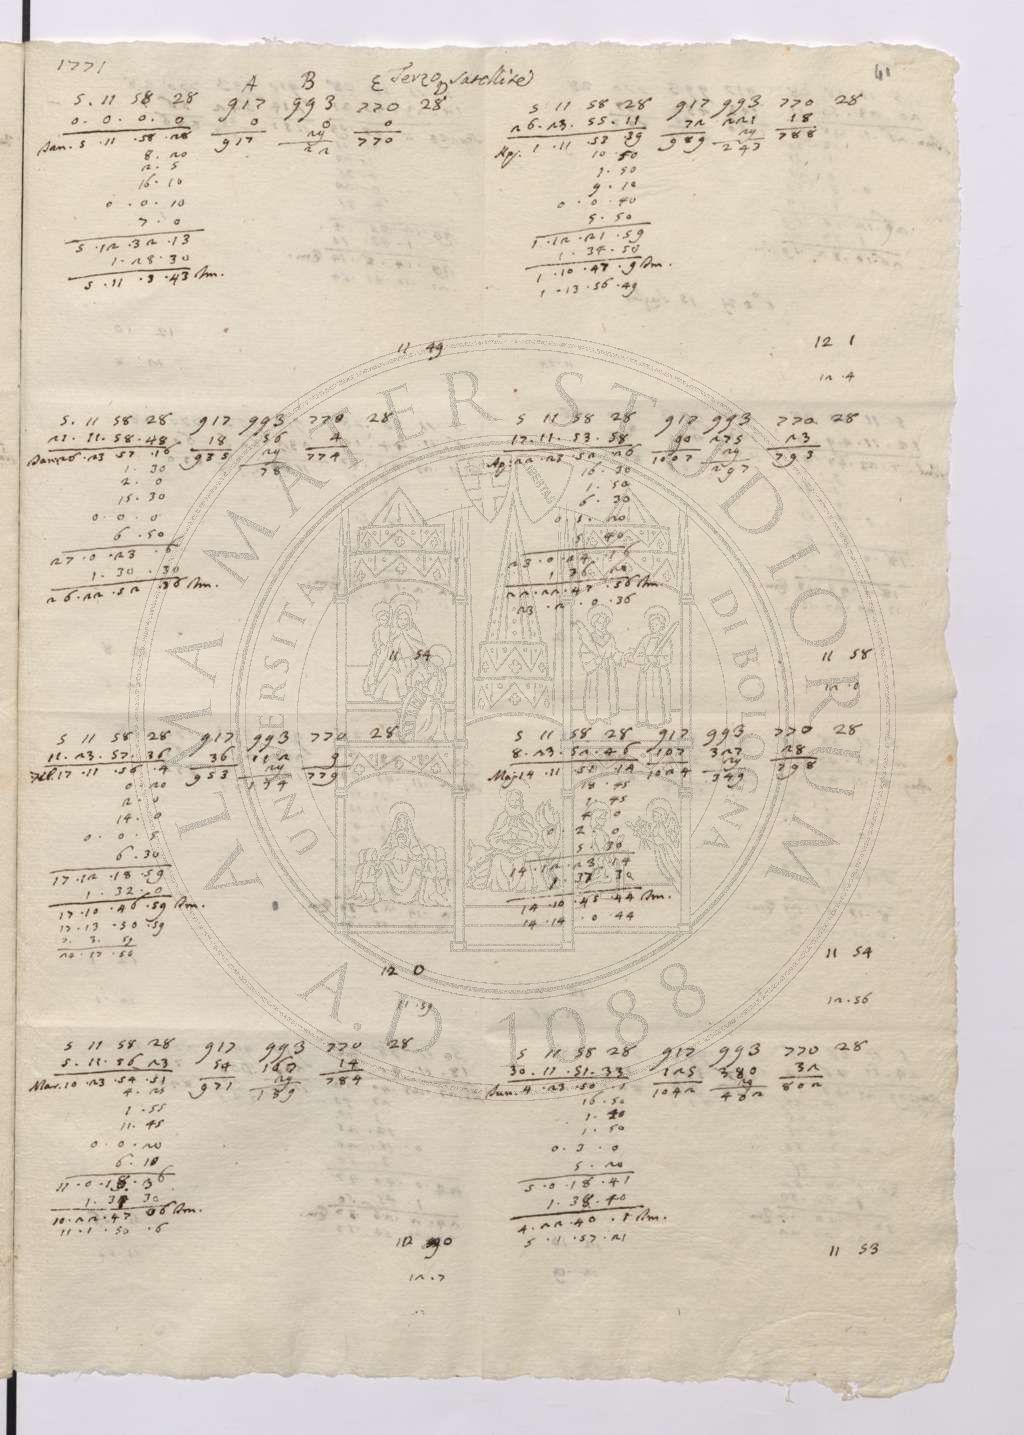 1771
61
A B E Terzo Satellite
5. 11 58 28 917 993 770 28
0. 0. 0. 0 0 0 0
Gen. 5. 11. 58. 28 917 24 770
8. 20 22
2. 5
16. 10
0. 0. 10
7. 0
5. 12. 32. 13
1. 28. 30
5. 11. 3. 43
5 11 58 28 917 993 770 28
26. 23. 55. 11 72 221 18
1. 11. 53. 39 989 24 788
10. 50 247
1. 50
9. 10
0. 0. 40
5. 50
1. 12. 21. 59
1. 34. 50
1. 10. 47. 9
1. 13. 56. 49
11 49
12 1
12. 4
5. 11 58 28 917 993 770 28
21. 11. 58. 48 18 56 4
26. 23. 57. 16 935 24 774
1. 30 78
2. 0
15. 30
0. 0. 0
6. 50
27. 0. 23. 6
1. 30. 30
26. 22. 52. 36
5 11 58 28 917 993 770 28
17. 11. 53. 58 90 275 23
Ap. 22. 23. 52. 26 1007 24 793
16. 30 297
1. 50
6. 30
0 5. 20
5. 40
23. 0. 24. 16
1. 36. 20
22. 22. 47. 56
23. 2. 0. 36
11 54
11 58
12. 0
5 11 58 28 917 993 770 28
11. 23. 57. 36 36 112 9
17. 11. 56. 4 953 24 779
0. 20 134
2. 0
14. 0
0. 0. 5
6. 30
17. 12. 18. 59
1. 32. 0
17. 10. 46. 59
17. 13. 50. 59
5 11 58 28 917 993 770 28
8. 23. 52. 46 107 327 28
Mag. 14. 11. 51. 14 1024 24 798
18. 45 349
1. 45
4. 0
0. 2. 0
5. 30
14. 12. 23. 14
1. 37. 30
14. 10. 45. 44
14. 14. 0. 44
12 0
11. 59
11 54
12. 56
5 11 58 28 917 993 770 28
5. 11. 56 23 54 167 14
Mar. 10. 23. 54. 51 971 24 784
4. 25 189
1. 55
11. 45
0. 0. 20
6. 10
11. 0. 18. 36
10. 22. 47 06
11. 1. 50. 6
5 11 58 28 917 993 770 28
30. 11. 51. 33 125 380 32
4. 23. 50. 1 1042 24 802
16. 50 402
1. 40
1. 50
0. 3. 0
5. 20
5. 0. 18. 41
1. 38. 40
4. 22. 40. 1
5. 1. 57. 21
12. 7
11 53
ALMA MATER STUDIORUM
UNIVERSITÀ DI BOLOGNA
A.D. 1088